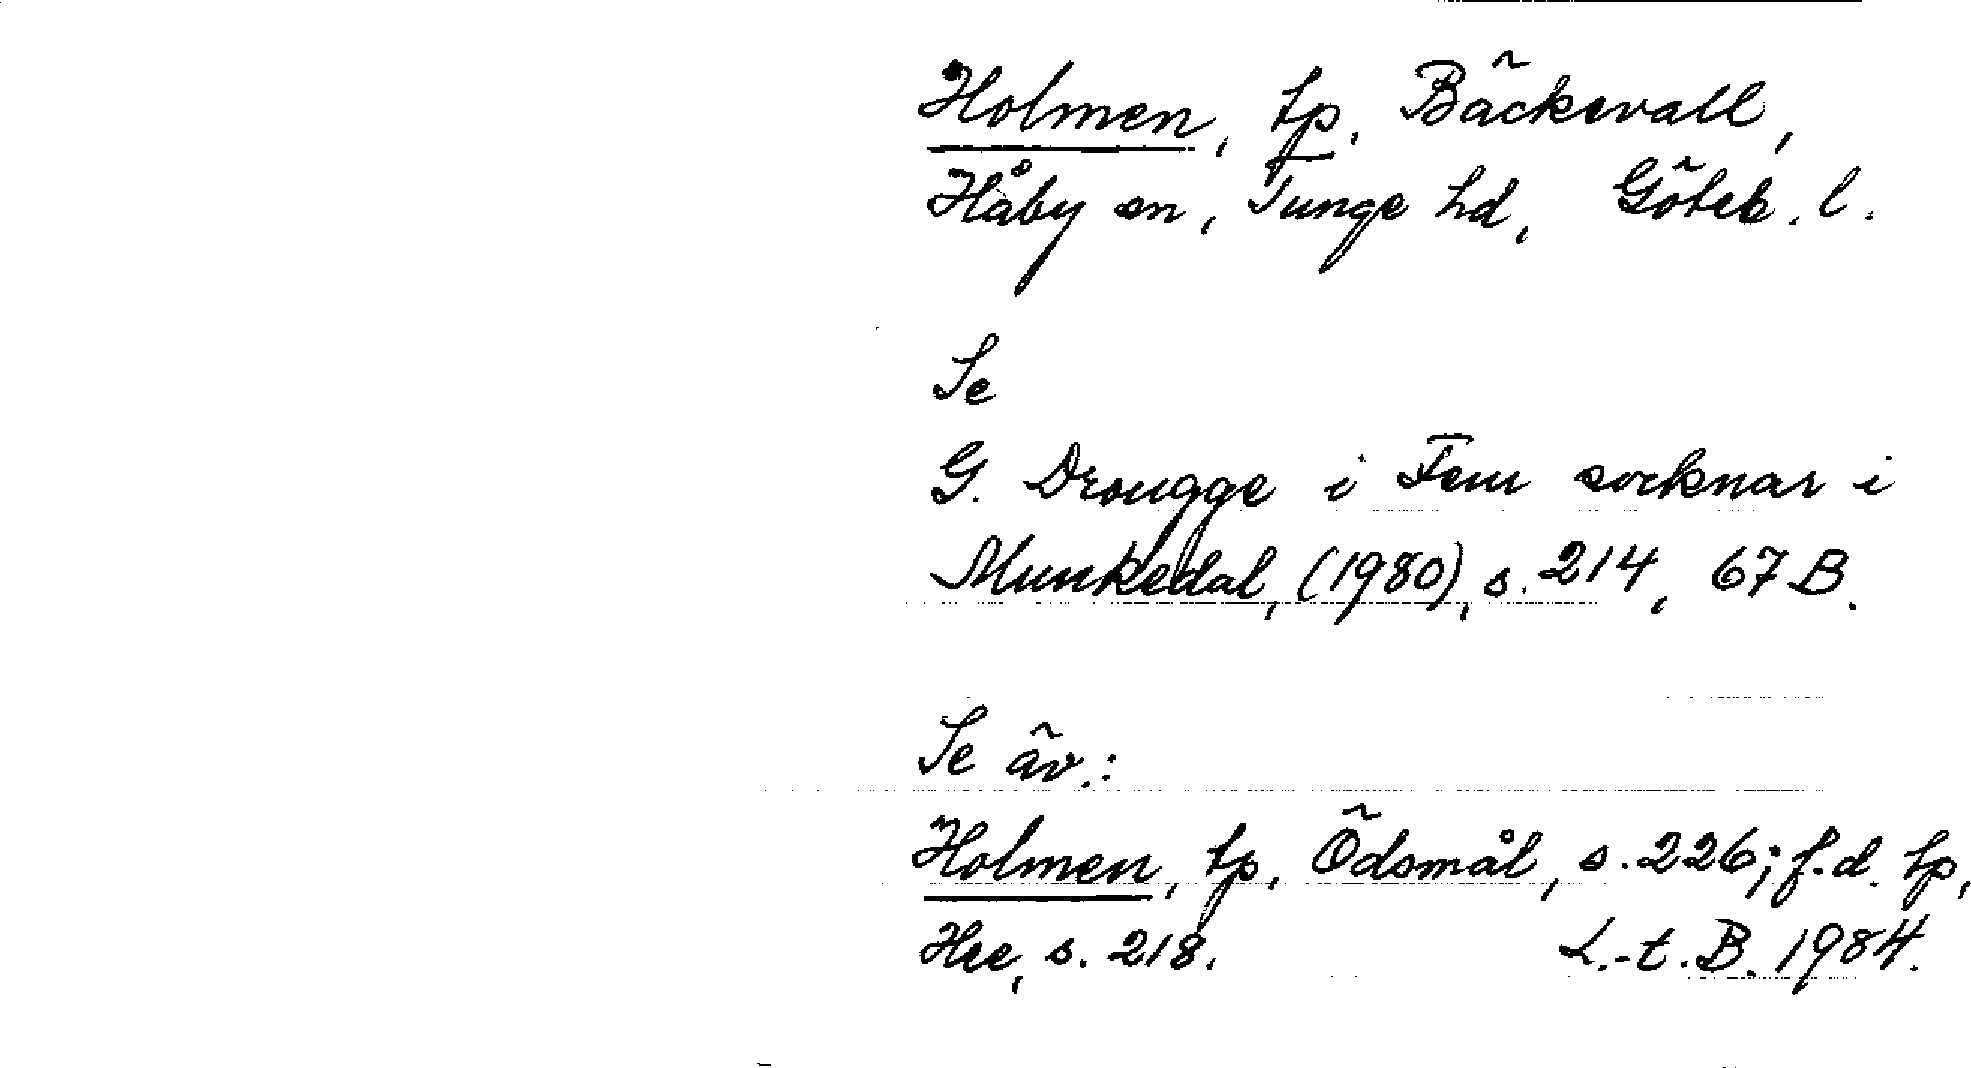 Holmen, tp, Bäckevall,
Håby sn, Tunge hd, Göteb. l.
Se
G. Drougge i Fem socknar i
Munkedal, (1980), s. 214, 67 B.
Se äv.:
Holmen, tp, Ödsmål, s. 226; f.d. tp,
Hee, s. 218. L.-t. B. 1984.